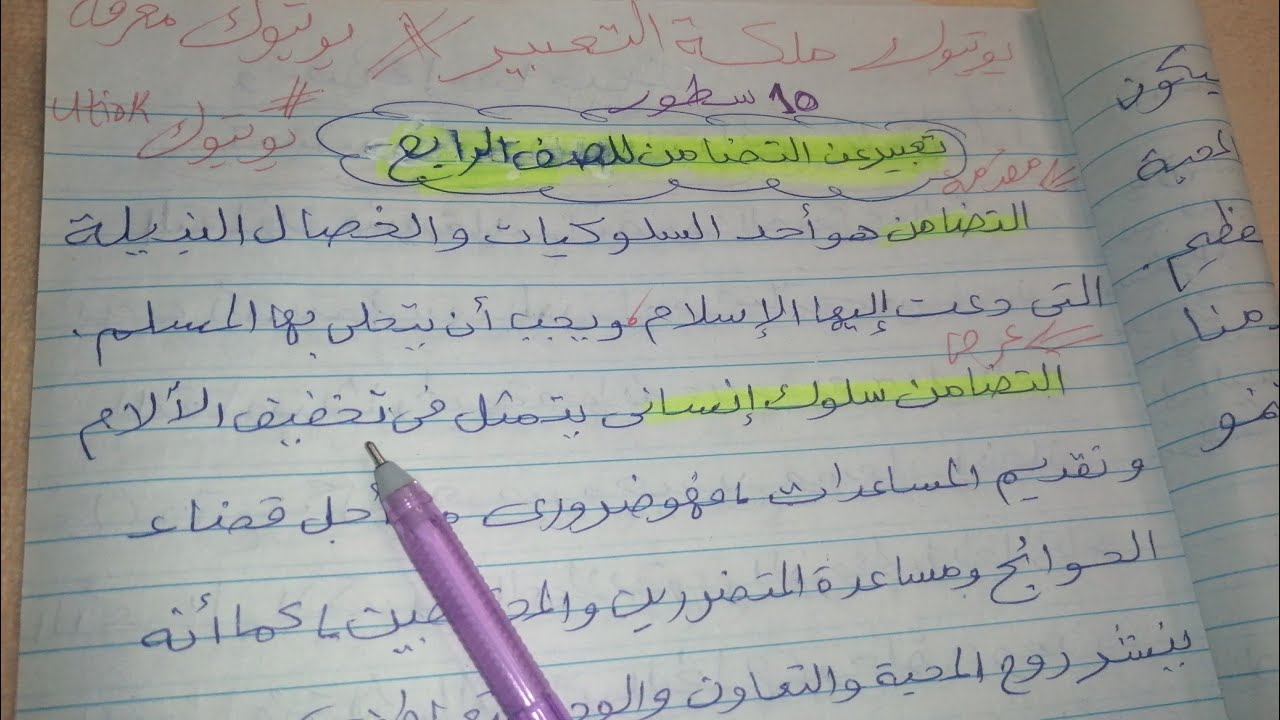 يوتيوك ملكة التعبير // يوتيوك معرفة
10 سطور
# يوتيوك Utiok
تعبير عن التضامن للصف الرابع
مقدمة
التضامن هو أحد السلوكيات والخصال النبيلة
التى دعت إليها الإسلام، ويجب أن يتحلى بها المسلم.
عرض
التضامن سلوك إنسانى يتمثل فى تخفيف الألام
وتقديم المساعدات، فهو ضرورى أجل قضاء
الحوائج ومساعدة المتضررين، كما أنه
ينشر روح المحبة والتعاون
يكون
المحبة